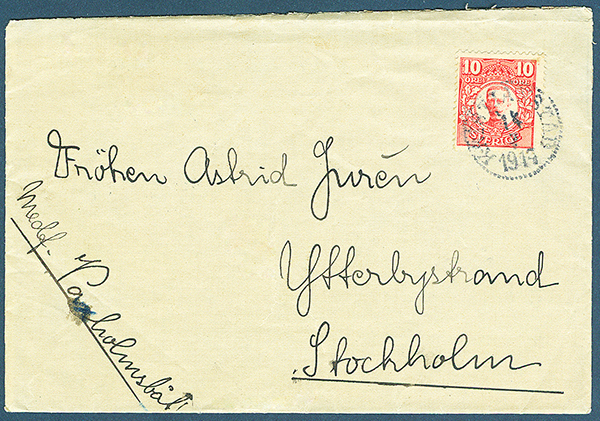 10 10
ÖRE ÖRE
SVERIGE
14
1917
Fröken Astrid Jurén
Ytterbystrand
Stockholm
Medf. Vaxholmsbåt